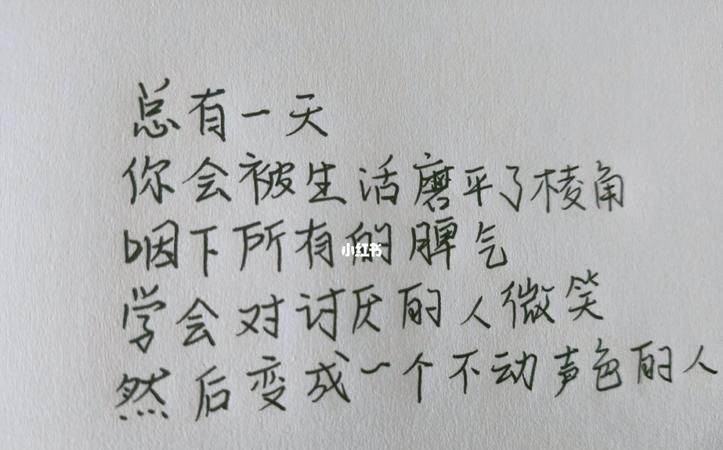 总有一天
你会被生活磨平了棱角
咽下所有的脾气
小红书
学会对讨厌的人微笑
然后变成一个不动声色的人